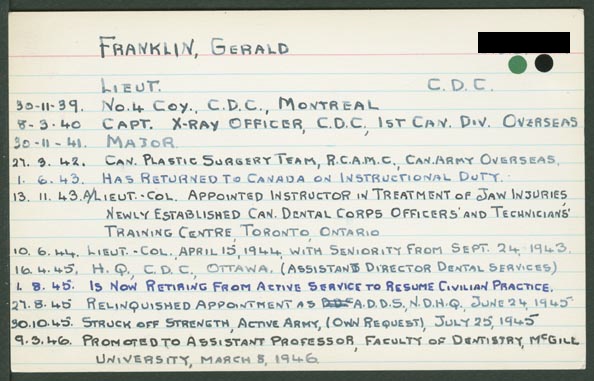 FRANKLIN, GERALD
LIEUT. C.D.C.
30-11-39. NO.4 COY., C.D.C., MONTREAL
8-3-40 CAPT. X-RAY OFFICER, C.D.C, 1ST CAN. DIV. OVERSEAS
30-11-41. MAJOR.
27. 9. 42. CAN. PLASTIC SURGERY TEAM, R.C.A.M.C., CAN. ARMY OVERSEAS.
1. 6. 43. HAS RETURNED TO CANADA ON INSTRUCTIONAL DUTY.
13. 11. 43. A/LIEUT-COL. APPOINTED INSTRUCTOR IN TREATMENT OF JAW INJURIES,
NEWLY ESTABLISHED CAN. DENTAL CORPS OFFICERS' AND TECHNICIANS'
TRAINING CENTRE, TORONTO, ONTARIO
10. 6. 44. LIEUT.-COL., APRIL 15, 1944, WITH SENIORITY FROM SEPT. 24, 1943.
16.4.45. H.Q., C.D.C, OTTAWA. (ASSISTANT DIRECTOR DENTAL SERVICES)
1. 8. 45. IS NOW RETIRING FROM ACTIVE SERVICE TO RESUME CIVILIAN PRACTICE.
27.8.45 RELINQUISHED APPOINTMENT AS A.D.D.S, N.D.H.Q., JUNE 24, 1945
30.10.45. STRUCK OFF STRENGTH, ACTIVE ARMY, (OWN REQUEST), JULY 25, 1945
9.3.46. PROMOTED TO ASSISTANT PROFESSOR, FACULTY OF DENTISTRY, MCGILL
UNIVERSITY, MARCH 8, 1946.